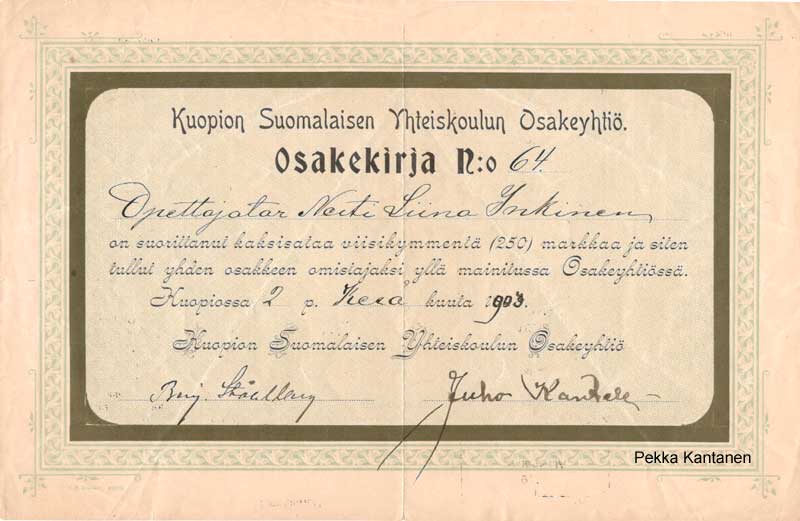 Kuopion Suomalaisen Yhteiskoulun Osakeyhtiö.
Osakekirja N:o 64.
Opettajatar Neiti Liina Inkinen
on suorittanut kaksisataa viisikymmentä (250) markkaa ja siten
tullut yhden osakkeen omistajaksi yllä mainitussa Osakeyhtiössä.
Kuopiossa 2 p. Kesä kuuta 1903.
Kuopion Suomalaisen Yhteiskoulun Osakeyhtiö
Benj. Ståhlberg Juho
Pekka Kantanen